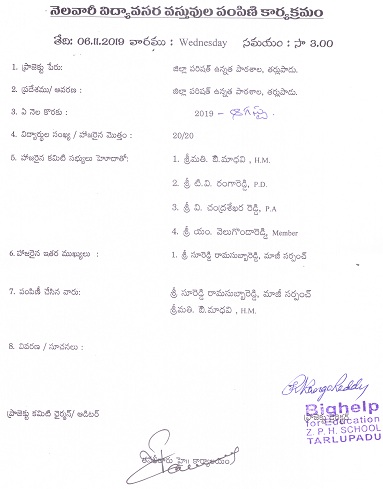 నెలవారీ విద్యావసర వస్తువుల పంపిణి కార్యక్రమం
తేది: 06.11.2019 వారము : Wednesday సమయం : సా 3.00
1. ప్రాజెక్టు పేరు: జిల్లా పరిషత్ ఉన్నత పాఠశాల, తర్లుపాడు.
2. ప్రదేశము/ ఆవరణ : జిల్లా పరిషత్ ఉన్నత పాఠశాల, తర్లుపాడు.
3. ఏ నెల కొరకు : 2019 - ఆగష్టు
4. విద్యార్థుల సంఖ్య / హాజరైన మొత్తం : 20/20
5. హాజరైన కమిటి సభ్యులు హెూదాతో: 1. శ్రీమతి. పి.మాధవి , H.M.
2. శ్రీ టి.వి. రంగారెడ్డి, P.D.
3. శ్రీ వి. చంద్రశేఖర రెడ్డి, P.A
4 శ్రీ యం. వెలుగొండారెడ్డి, Member
6. హాజరైన ఇతర ముఖ్యులు : 1. శ్రీ సూరెడ్డి రామసుబ్బారెడ్డి, మాజీ సర్పంచ్
7. పంపిణీ చేసిన వారు: శ్రీ సూరెడ్డి రామసుబ్బారెడ్డి, మాజీ సర్పంచ్
శ్రీమతి. పి.మాధవి , H.M.
8. వివరణ / సూచనలు :
ప్రాజెక్టు కమిటి చైర్మన్/ ఆడిటర్
Bighelp
for Education
Z. P. H. SCHOOL
TARLUPADU